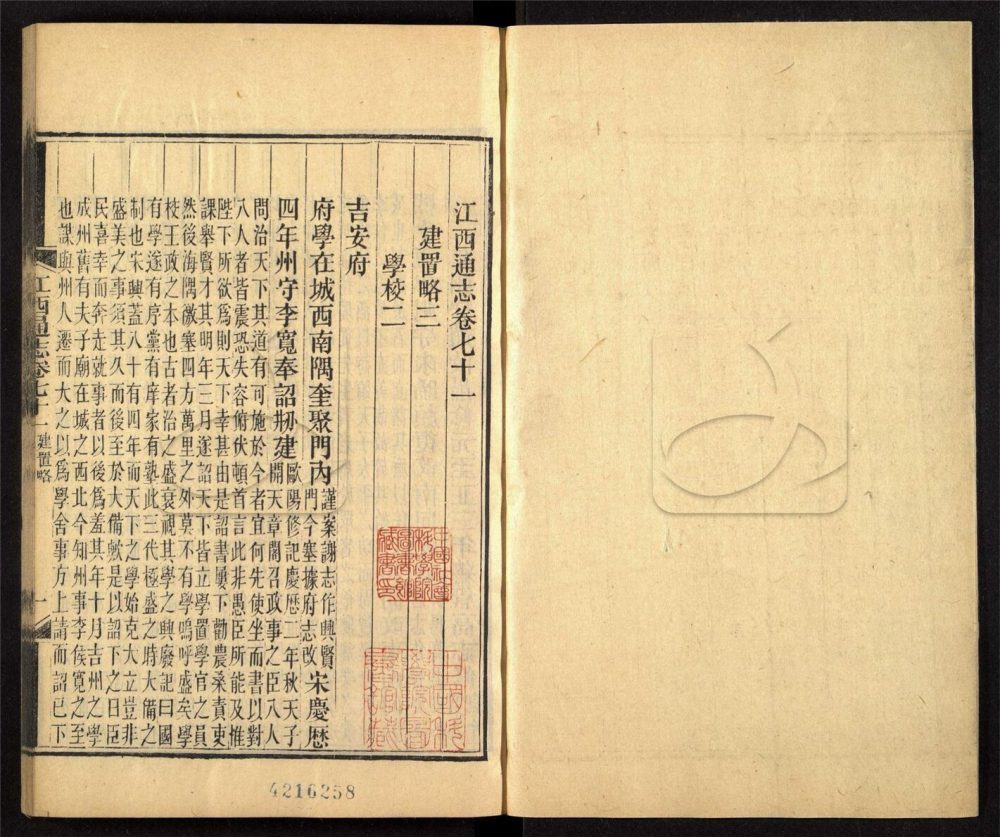 江西通志卷七十一
建置略三
學校二
吉安府
府學在城西南隅奎聚門內謹案謝志作興賢門今塞據府志改宋慶歷
四年州守李寬奉詔剏建歐陽修記慶歷二年秋天子開天章閣召政事之臣八人
問治天下其道有可施於今者宜何先使坐而書以對
八人者皆震恐失容俯伏頓首言此非愚臣所能及惟
陛下所欲爲則天下幸甚由是詔書屢下勸農桑責吏
課舉賢才其明年三月遂詔天下皆立學置學官之員
然後海隅徼塞四方萬里之外莫不有學嗚呼盛矣學
校王政之本也古者治之盛衰視其學之興廢記曰國
有學遂有序黨有庠家有塾此三代極盛之時大備之
制也宋興蓋八十有四年而天下之學始克大立豈非
盛美之事須其久而後至於大備歟是以詔下之日臣
民喜幸而奔走就事者以後爲羞其年十月吉州之學
成州舊有夫子廟在城之西北今知州事李侯寬之至
也謀與州人遷而大之以爲學舍事方上請而詔已下
江西通志卷七十一 建置略 一
中國社會科學院圖書館藏書印
4216258